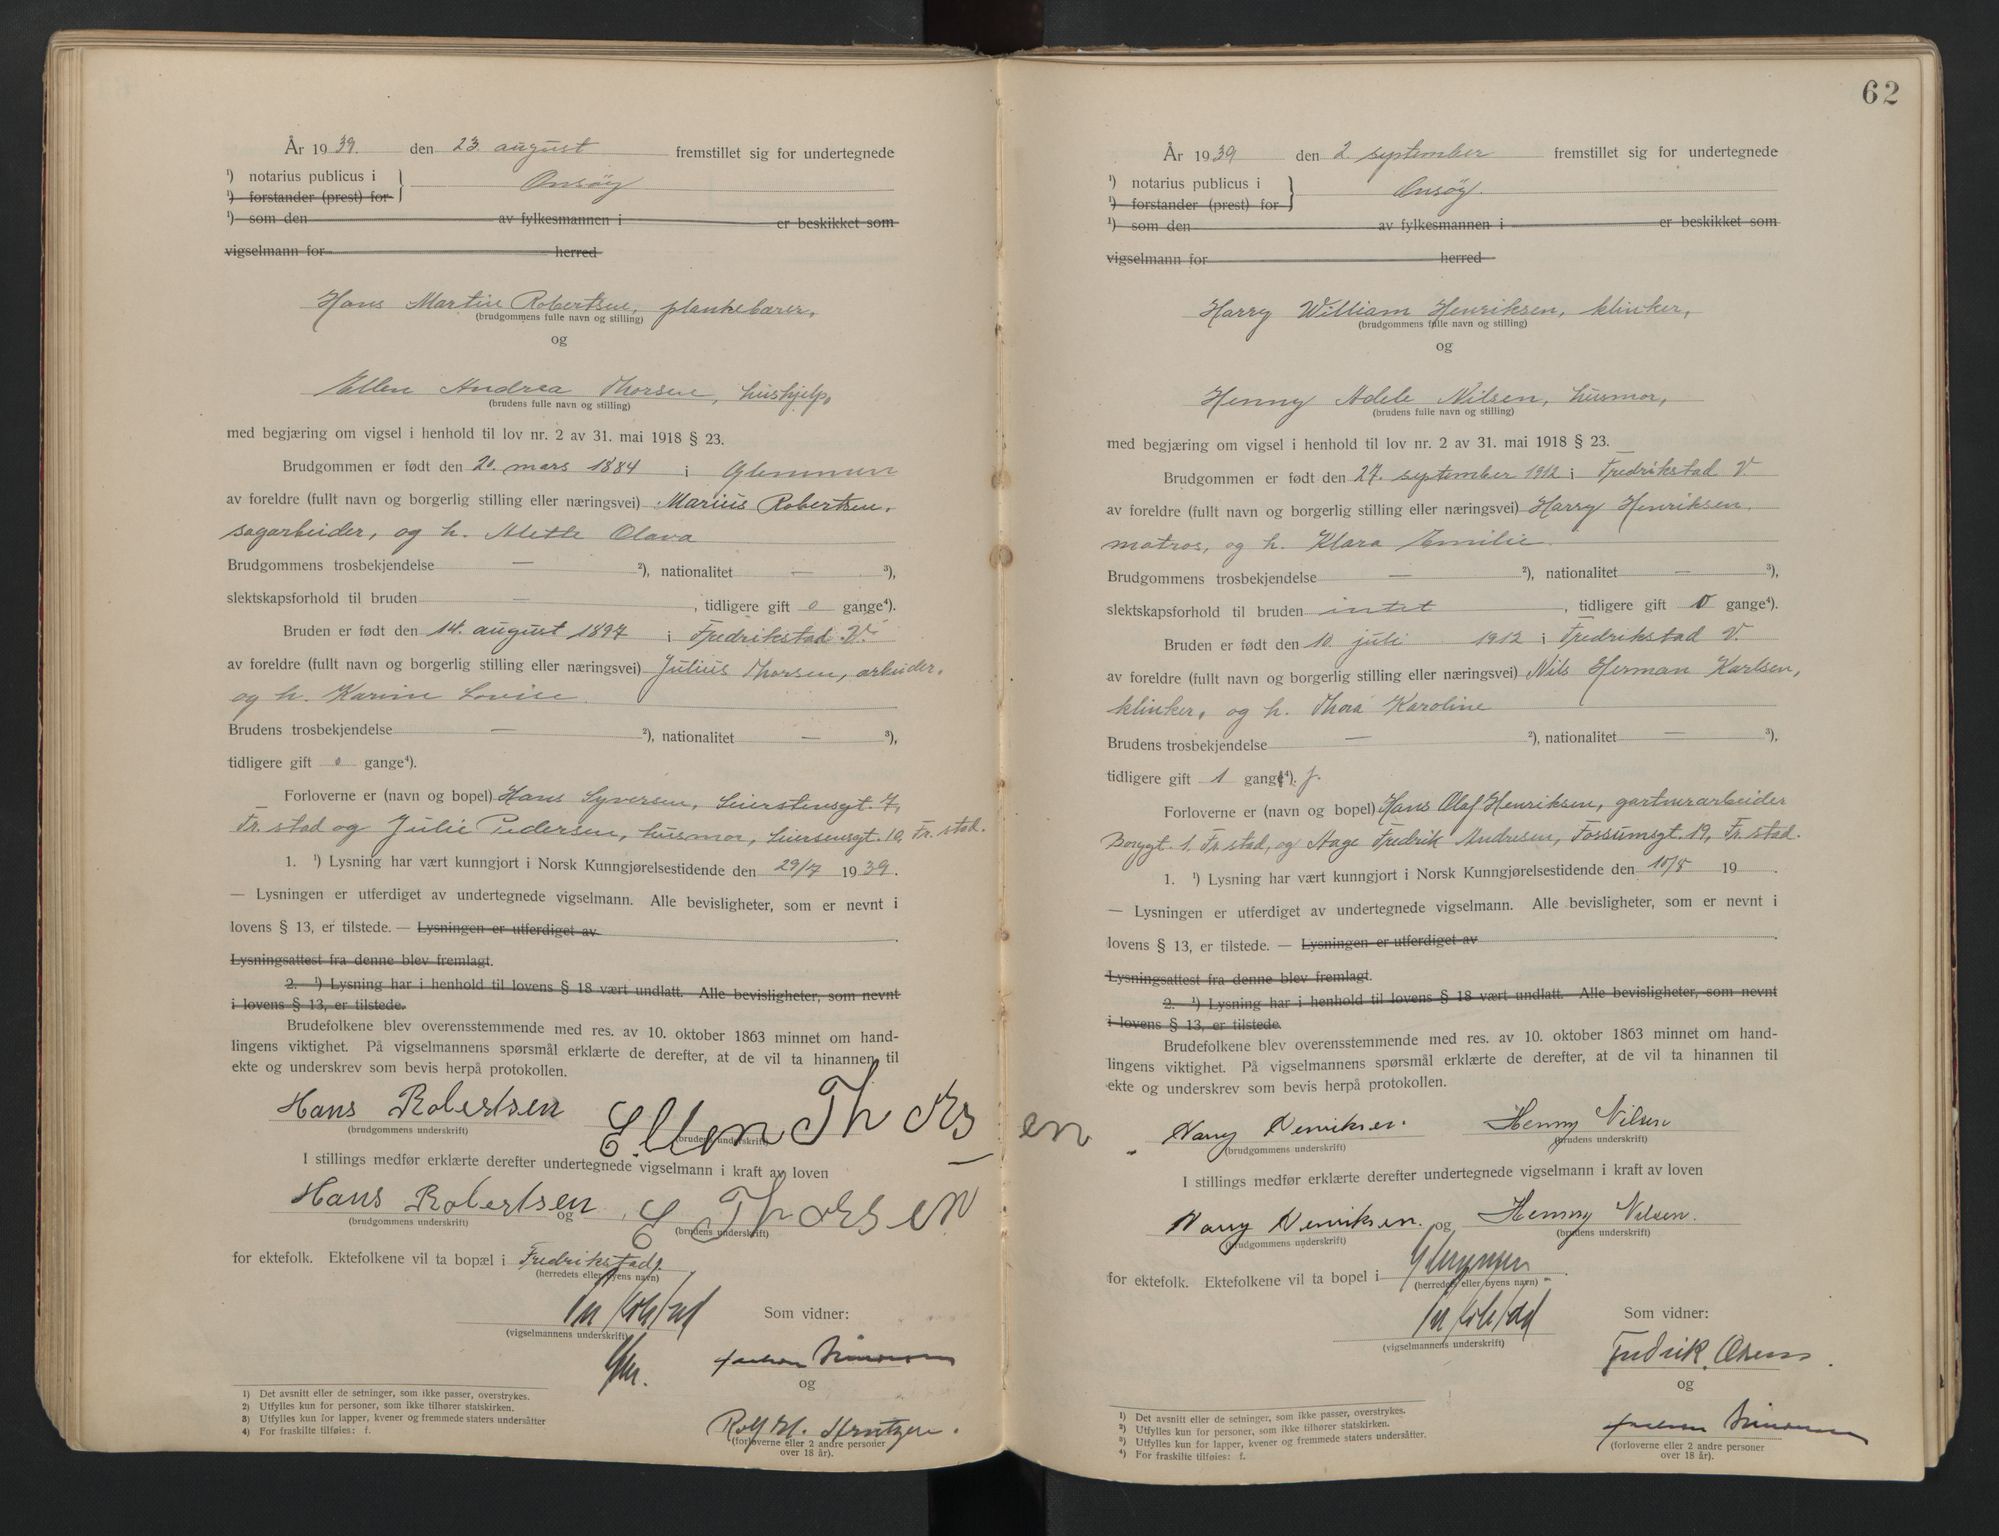 År 1939. den 23. august fremstillet sig for undertegnede
¹) notarius publicus i
¹) forstander (prest) for } Onsøy
¹) som den av fylkesmannen i er beskikket som
vigselmann for herred
Hans Martin Robertsen, plankebærer,
(brudgommens fulle navn og stilling)
og
Ellen Andrea Thorsen, hushjelp,
(brudens fulle navn og stilling)
med begjæring om vigsel i henhold til lov nr. 2 av 31. mai 1918 § 23.
Brudgommen er født den 20. mars 1884 i Glemmen
av foreldre (fullt navn og borgerlig stilling eller næringsvei) Marius Robertsen,
sagarbeider, og h. Mette Olava
Brudgommens trosbekjendelse — ²), nationalitet — ³),
slektskapsforhold til bruden — , tidligere gift 0 gange⁴).
Bruden er født den 14. august 1897 i Fredrikstad V.
av foreldre (fullt navn og borgerlig stilling eller næringsvei) Julius Thorsen, arbeider,
og h. Karine Lovise
Brudens trosbekjendelse — ²), nationalitet — ³),
tidligere gift 0 gange⁴).
Forloverne er (navn og bopel) Hans Syversen, Leiestensgt. 7,
Fr.stad og Julie Pedersen, husmor, Leiersensgt. 10, Fr.stad.
1. ¹) Lysning har vært kunngjort i Norsk Kunngjørelsestidende den 29/7 1939.
— Lysningen er utferdiget av undertegnede vigselmann. Alle bevisligheter, som er nevnt i
lovens § 13, er tilstede. — Lysningen er utferdiget av
Lysningsattest fra denne blev fremlagt.
2. ¹) Lysning har i henhold til lovens § 18 vært undlatt. Alle bevisligheter, som nevnt
i lovens § 13, er tilstede.
Brudefolkene blev overensstemmende med res. av 10. oktober 1863 minnet om hand-
lingens viktighet. På vigselmannens spørsmål erklærte de derefter, at de vil ta hinannen til
ekte og underskrev som bevis herpå protokollen.
Hans Robertsen Ellen Thorsen
(brudgommens underskrift) (brudens underskrift)
I stillings medfør erklærte derefter undertegnede vigselmann i kraft av loven
Hans Robertsen og E Thorsen
(brudgommens underskrift) (brudens underskrift)
for ektefolk. Ektefolkene vil ta bopæl i Fredrikstad.
(herredets eller byens navn)
Som vidner:
(vigselmannens underskrift)
og
Rolf H. Arntzen.
(forloverne eller 2 andre personer
over 18 år).
1) Det avsnitt eller de setninger, som ikke passer, overstrykes.
2) Utfylles kun for personer, som ikke tilhører statskirken.
3) Utfylles kun for lapper, kvener og fremmede staters undersåtter
4) For fraskilte tilføies: f.
62
År 1939 den 2. september fremstillet sig for undertegnede
¹) notarius publicus i
¹) forstander (prest) for } Onsøy.
¹) som den av fylkesmannen i er beskikket som
vigselmann for herred
Harry William Henriksen, klinker,
(brudgommens fulle navn og stilling)
og
Henny Adele Nilsen, husmor,
(brudens fulle navn og stilling)
med begjæring om vigsel i henhold til lov nr. 2 av 31. mai 1918 § 23.
Brudgommen er født den 27. september 1912 i Fredrikstad V.
av foreldre (fullt navn og borgerlig stilling eller næringsvei) Harry Henriksen,
matros, og h. Klara Emilie
Brudgommens trosbekjendelse — ²), nationalitet — ³),
slektskapsforhold til bruden intet , tidligere gift 0 gange⁴).
Bruden er født den 10 juli 1912 i Fredrikstad V.
av foreldre (fullt navn og borgerlig stilling eller næringsvei) Nils Herman Karlsen,
klinker, og h. Thora Karoline
Brudens trosbekjendelse — ²), nationalitet — ³),
tidligere gift 1 gang⁴). f.
Forloverne er (navn og bopel) Hans Olaf Henriksen, gartnerarbeider
Borggt. 1. Fr.stad, og Aage Fredrik Andresen, Fossumsgt. 19, Fr.stad.
1. ¹) Lysning har vært kunngjort i Norsk Kunngjørelsestidende den 10/8 19 .
— Lysningen er utferdiget av undertegnede vigselmann. Alle bevisligheter, som er nevnt i
lovens § 13, er tilstede. — Lysningen er utferdiget av
Lysningsattest fra denne blev fremlagt.
2. ¹) Lysning har i henhold til lovens § 18 vært undlatt. Alle bevisligheter, som nevnt
i lovens § 13, er tilstede.
Brudefolkene blev overensstemmende med res. av 10. oktober 1863 minnet om hand-
lingens viktighet. På vigselmannens spørsmål erklærte de derefter, at de vil ta hinannen til
ekte og underskrev som bevis herpå protokollen.
Harry Henriksen. Henny Nilsen
(brudgommens underskrift) (brudens underskrift)
I stillings medfør erklærte derefter undertegnede vigselmann i kraft av loven
Harry Henriksen. og Henny Nilsen.
(brudgommens underskrift) (brudens underskrift)
for ektefolk. Ektefolkene vil ta bopel i Glemmen
(herredets eller byens navn)
Som vidner:
(vigselmannens underskrift)
Fredrik Olsens
og
(forloverne eller 2 andre personer
over 18 år).
1) Det avsnitt eller de setninger, som ikke passer, overstrykes.
2) Utfylles kun for personer, som ikke tilhører statskirken.
3) Utfylles kun for lapper, kvener og fremmede staters undersåtter.
4) For fraskilte tilføies: f.